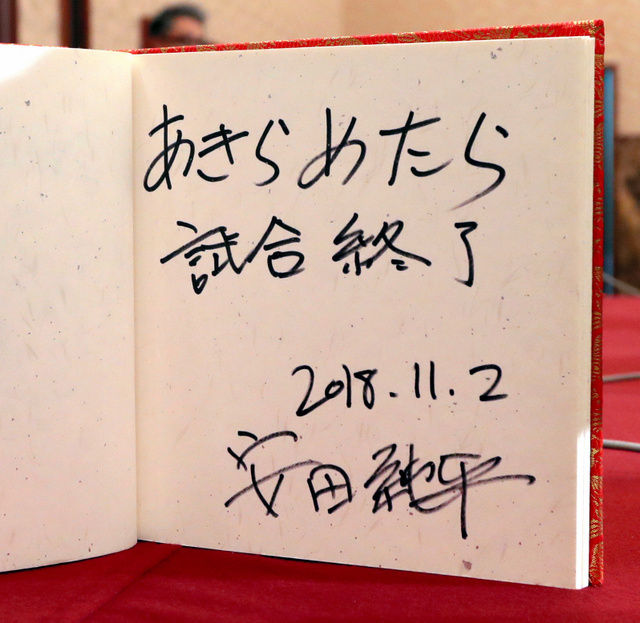 あきらめたら
試合終了
2018.11.2
安田純平